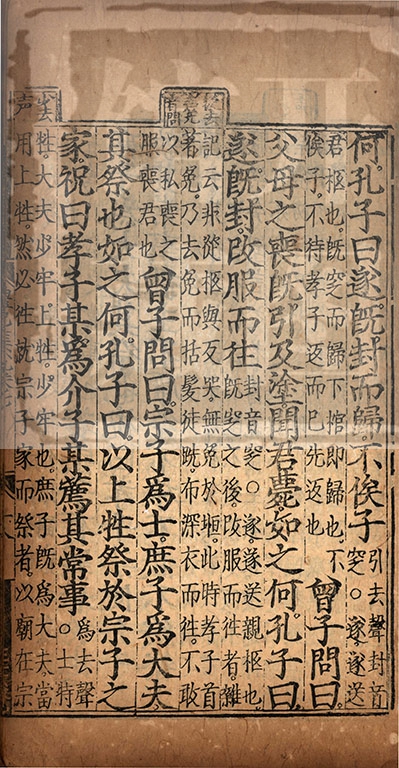 何孔子曰遂既封而歸不俟子引去聲封音
窆○遂遂送
君柩也既窆而歸下棺即歸也不
俟子不待孝子返而已先返也
曾子問曰
父母之喪既引及塗聞君薨如之何孔子曰
遂既封改服而往封音窆○遂遂送親柩也
既窆之後改服而往者雜
記云非從柩與反哭無免於堩此時孝子首
著免乃去免而括髮徒跣布深衣而往不敢
以私喪之
服喪君也
曾子問曰宗子爲士庶子爲大夫
其祭也如之何孔子曰以上牲祭於宗子之
家祝曰孝子某爲介子某薦其常事爲去聲
○士特
少去
声
牲大夫少牢上牲少牢也庶子既爲大夫當
用上牲然必往就宗子家而祭者以廟在宗